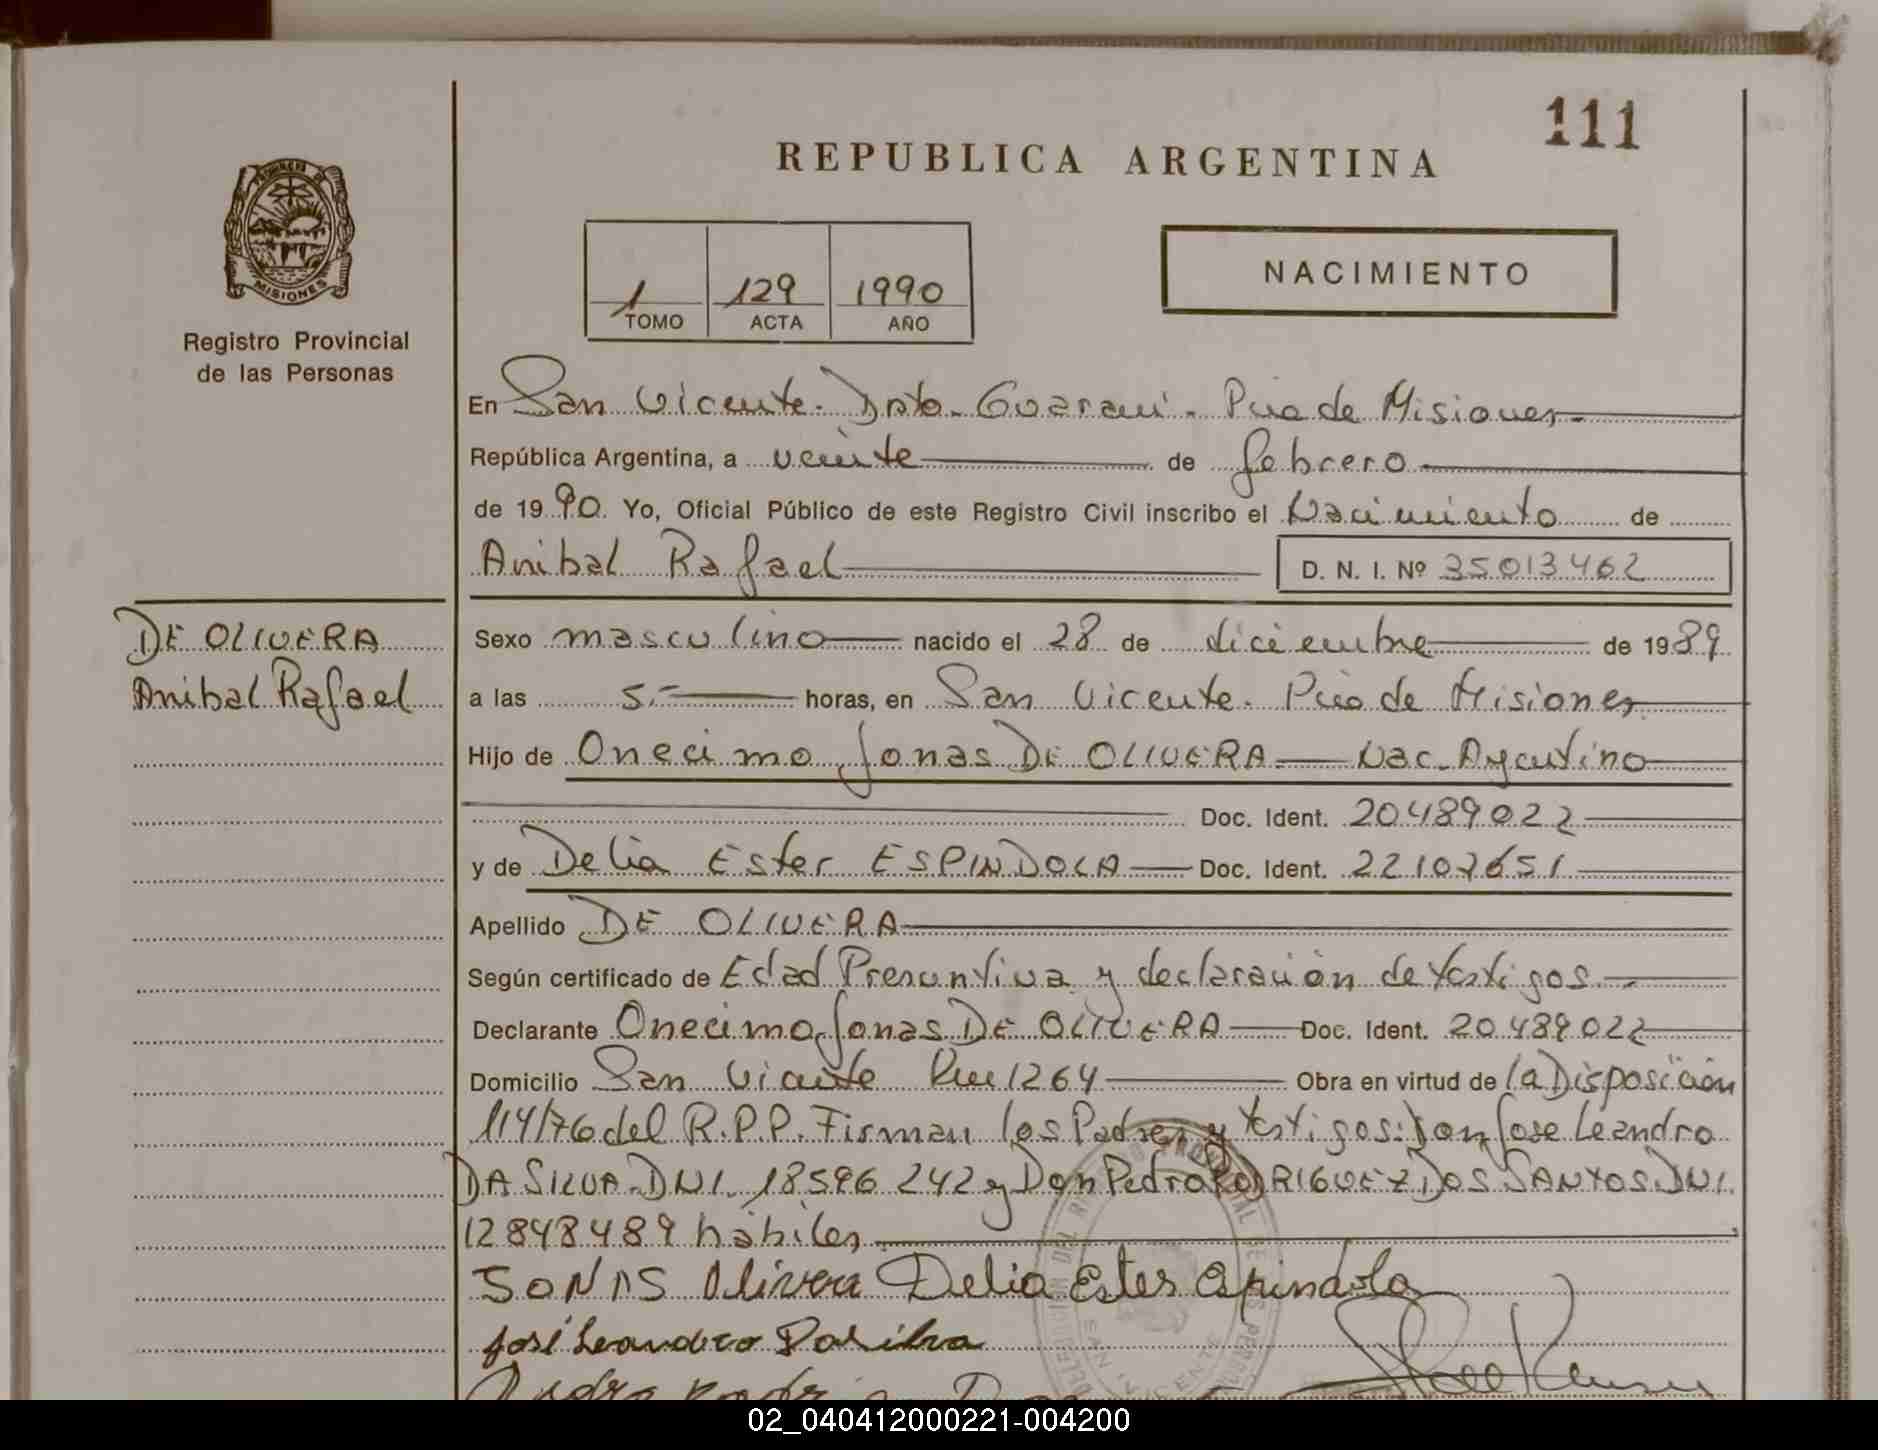 111
REPUBLICA ARGENTINA
PROVINCIA DE
MISIONES
Registro Provincial
de las Personas
1 129 1990
TOMO ACTA AÑO
NACIMIENTO
En San Vicente. Dpto. Guaraní. Pcia de Misiones.
República Argentina, a veinte de febrero
de 1990. Yo, Oficial Público de este Registro Civil inscribo el Nacimiento de
Anibal Rafael D. N. I. Nº 35013462
DE OLIVERA
Anibal Rafael
Sexo masculino nacido el 28 de diciembre de 1989
a las 5.- horas, en San Vicente. Pcia de Misiones
Hijo de Onecimo Jonas DE OLIVERA Nac. Argentino
Doc. Ident. 20489022
y de Delia Ester ESPINDOLA Doc. Ident. 22107651
Apellido DE OLIVERA
Según certificado de Edad Presuntiva y declaración de testigos.
Declarante Onecimo Jonas DE OLIVERA Doc. Ident. 20.489022
Domicilio San Vicente Km 1264 Obra en virtud de la Disposición
114/76 del R.P.P. Firman los Padres y testigos: Don Jose Leandro
DA SILVA. DNI. 18596242 y Don Pedro RODRIGUEZ DOS SANTOS DNI.
12848489 hábiles
JONAS Olivera Delia Ester Espindola
José Leandro Dasilva
02_040412000221-004200